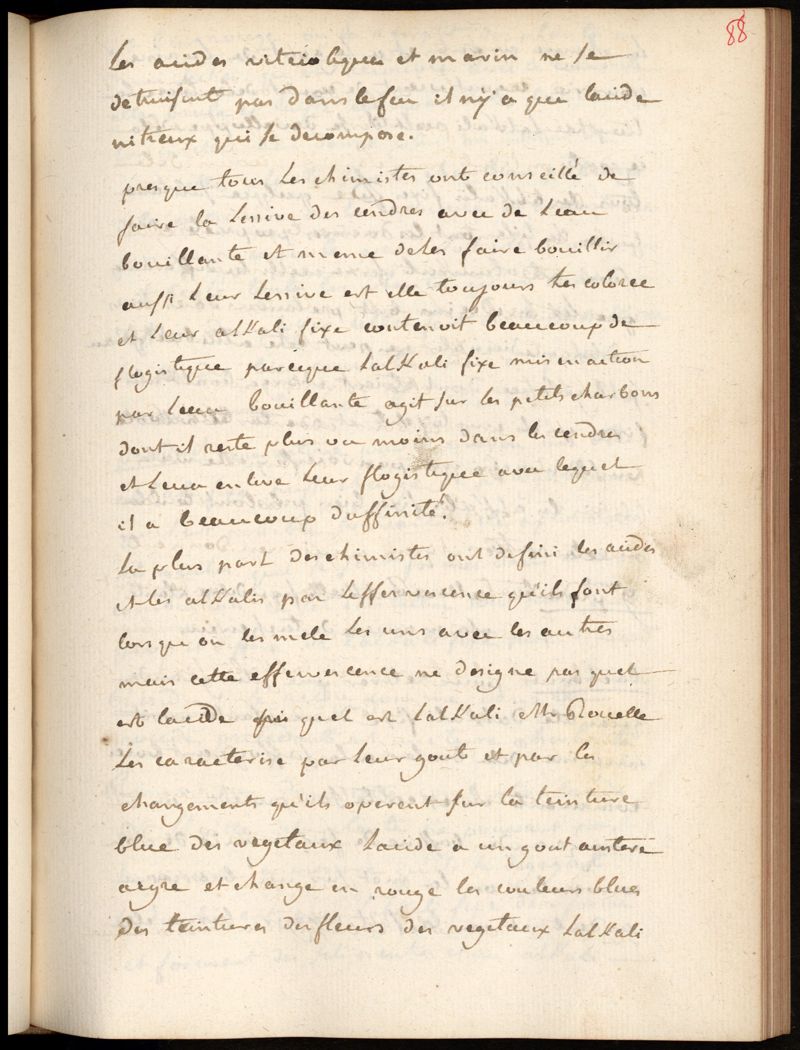 88
Les acides vitriolique et marin ne se
detruisent pas dans lefeu il n'y a que lacide
nitreux qui se decompose.
presque tous Les chimistes ont conseillé de
faire la Lessive des cendres avec de Leau
bouillante et meme deles faire bouillir
aussi Leur Lessive est elle toujours tres coloree
et Leur alKali fixe contenoit beaucoup de
flogistique parceque LalKali fixe mis en action
par Leau bouillante agit sur les petits charbons
dont il reste plus ou moins dans les cendres
et Leur enleve Leur flogistique avec lequel
il a beaucoup daffinité.
La plus part des chimistes ont defini les acides
et les alKalis par Leffervescence qu'ils font
lorsque on les mele Les uns avec les autres
mais cette effervescence ne designe pas quel
est lacide quel est LalKali Mr. Rouelle
Les caracterise par Leur gout et par les
changements qu'ils operent sur la teinture
blue des vegetaux Lacide a un gout austere
aegre et change en rouge les couleurs blues
des teintures des fleurs des vegetaux LalKali